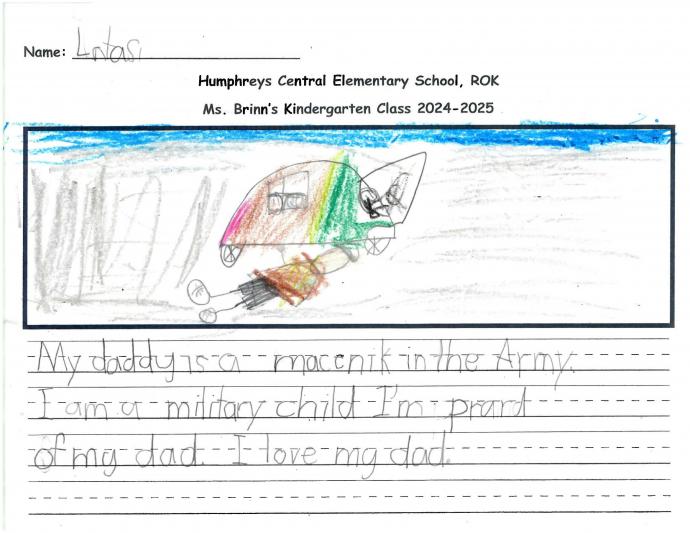 Name:
Humphreys Central Elementary School, ROK
Ms. Brinn's Kindergarten Class 2024-2025
My daddy is a maccnik in the Army.
I am a military child I'm prard
of my dad. I love my dad.